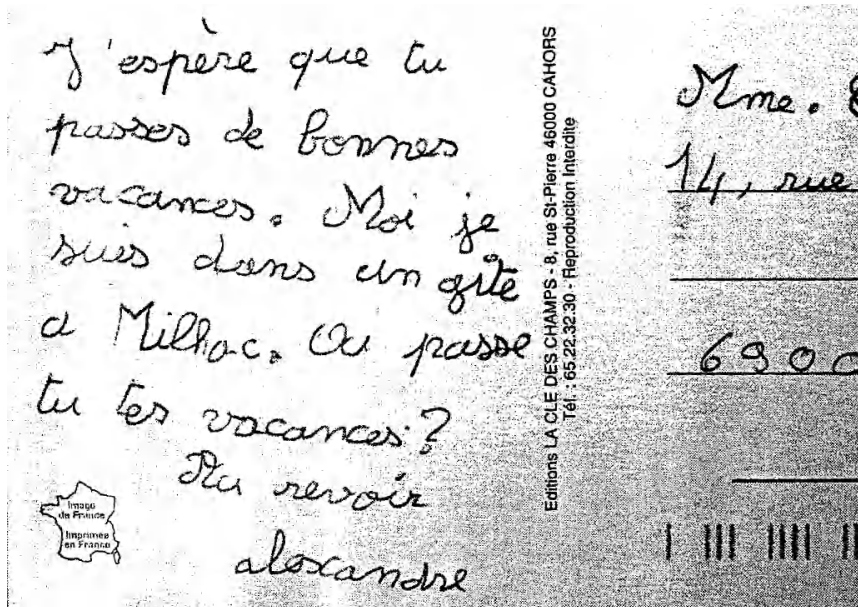 J'espère que tu
passes de bonnes
vacances. Moi je
suis dans un gîte
a Milhac. Ou passe
tu tes vacances ?
Au revoir
alexandre
Image
de France
Imprimée
en France
Editions LA CLE DES CHAMPS - 8, rue St-Pierre 46000 CAHORS
Tél. : 65.22.32.30 - Reproduction Interdite
Mme.
14, rue
6900